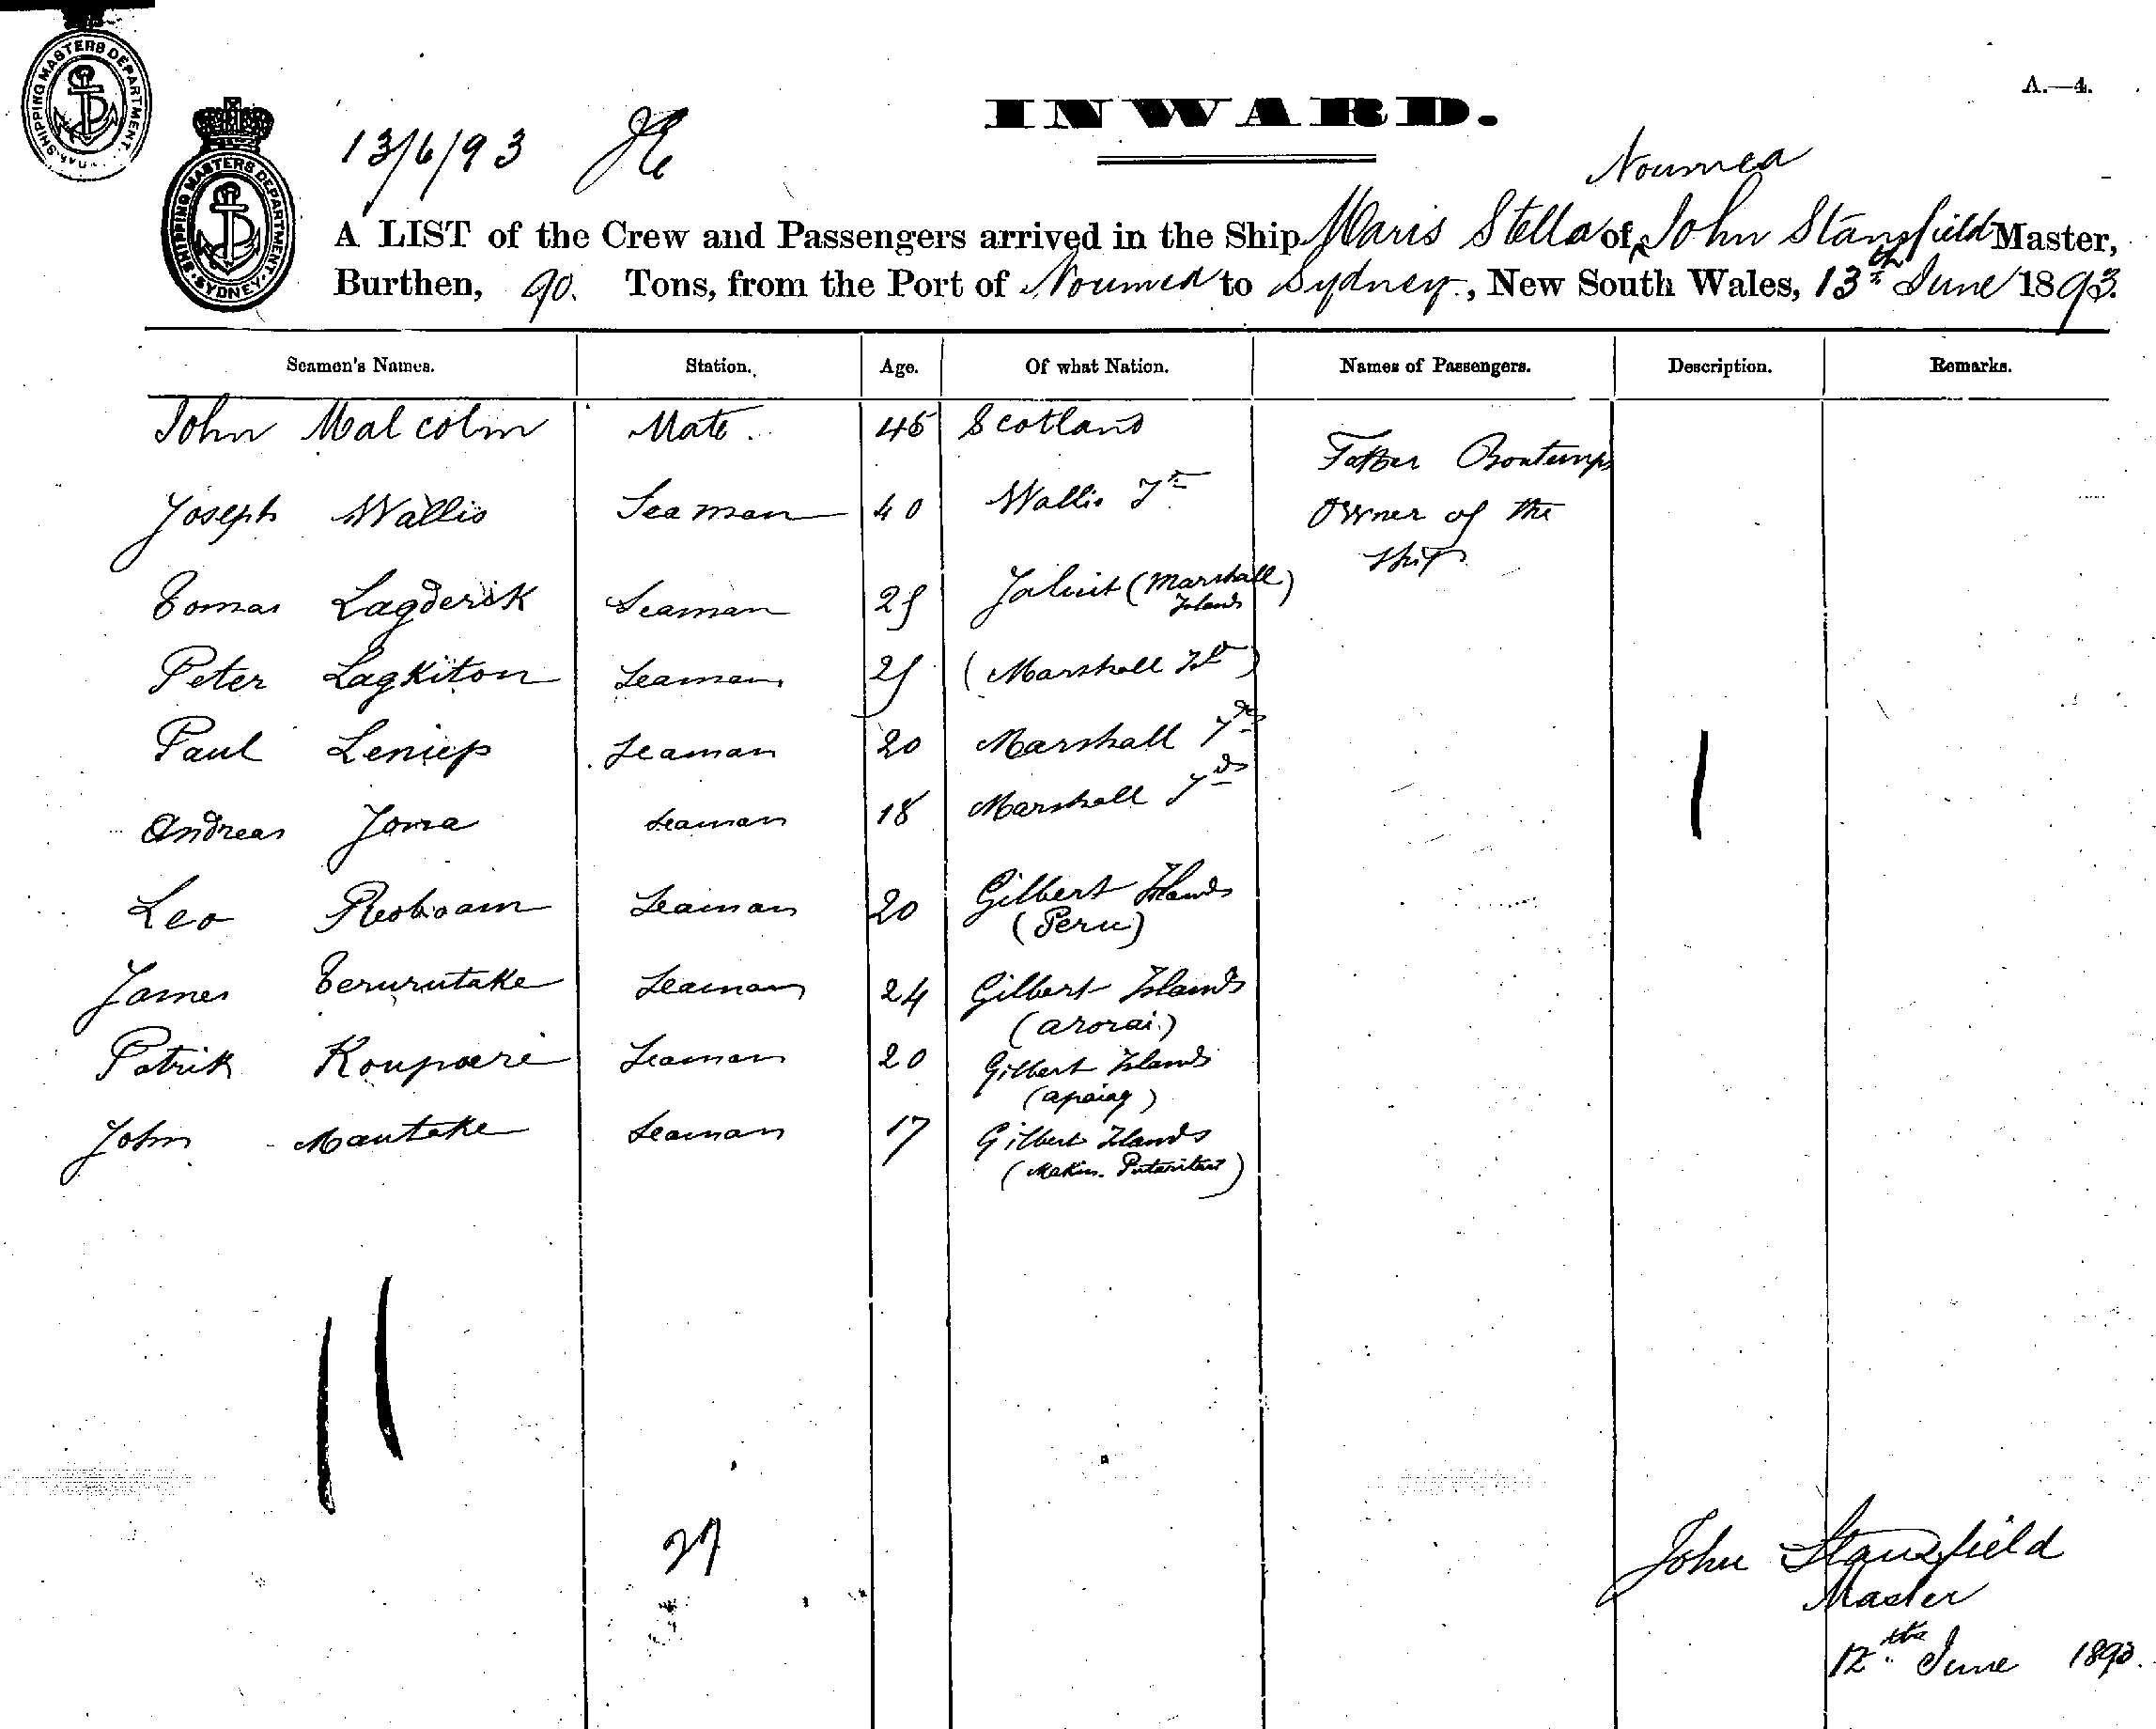 A.—4.
SHIPPING MASTERS DEPARTMENT
SHIPPING MASTERS DEPARTMENT. SYDNEY.
13/6/93
INWARD.
Noumea
A LIST of the Crew and Passengers arrived in the Ship Maris Stella of John Stansfield Master,
Burthen, 90. Tons, from the Port of Noumea to Sydney, New South Wales, 13th June 1893.
Seamen's Names. Station. Age. Of what Nation. Names of Passengers. Description. Remarks.
John Malcolm Mate. 45 Scotland
Father Bontemps
Joseph Wallis Seaman 40 Wallis Owner of the
ship
Tomas Lagderik Seaman 25 Jaluit (Marshall
Islands)
Peter Lagkiton Seaman 25 (Marshall Ids)
Paul Leniep Seaman 20 Marshall Ids
Andreas Joma Seaman 18 Marshall Ids
Leo Reoboam Seaman 20 Gilbert Islands
(Peru)
James Terurutake Seaman 24 Gilbert Islands
(arorai.)
Patrik Koupaere Seaman 20 Gilbert Islands
(apaiag)
John Mautake Seaman 17 Gilbert Islands
(Makin. Putaritari)
11
John Stansfield
Master
12th June 1893.